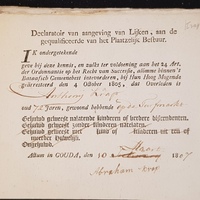 Declaratoir van aangeving van Lijken, aan de
gequalificeerde van het Plaatzelijk Bestuur.
IK ondergetekende
geve bij deze kennis, en zulks ter voldoening aan het 24 Art.
der Ordonnantie op het Recht van Successie, alomme binnen 's
Bataafsch Gemeenebest intevoeren, bij Hun Hoog Mogende
gearresteerd den 4 October 1805, dat is Overleden in
Anthony Knap
oud 72 Jaren, gewoond hebbende op de Turfmarkt
Gehuwd geweest nalatende kinderen of verdere descendenten.
Gehuwd geweest zonder kinderen natelaten.
Gehuwd geweest met kinderen uit een of
meerder Huwelijk.
Ongehuwd.
Actum in GOUDA, den 10 Maart 1807
Abraham Knap